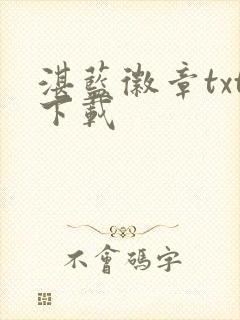 湛藍徽章txt
下載
不會碼字